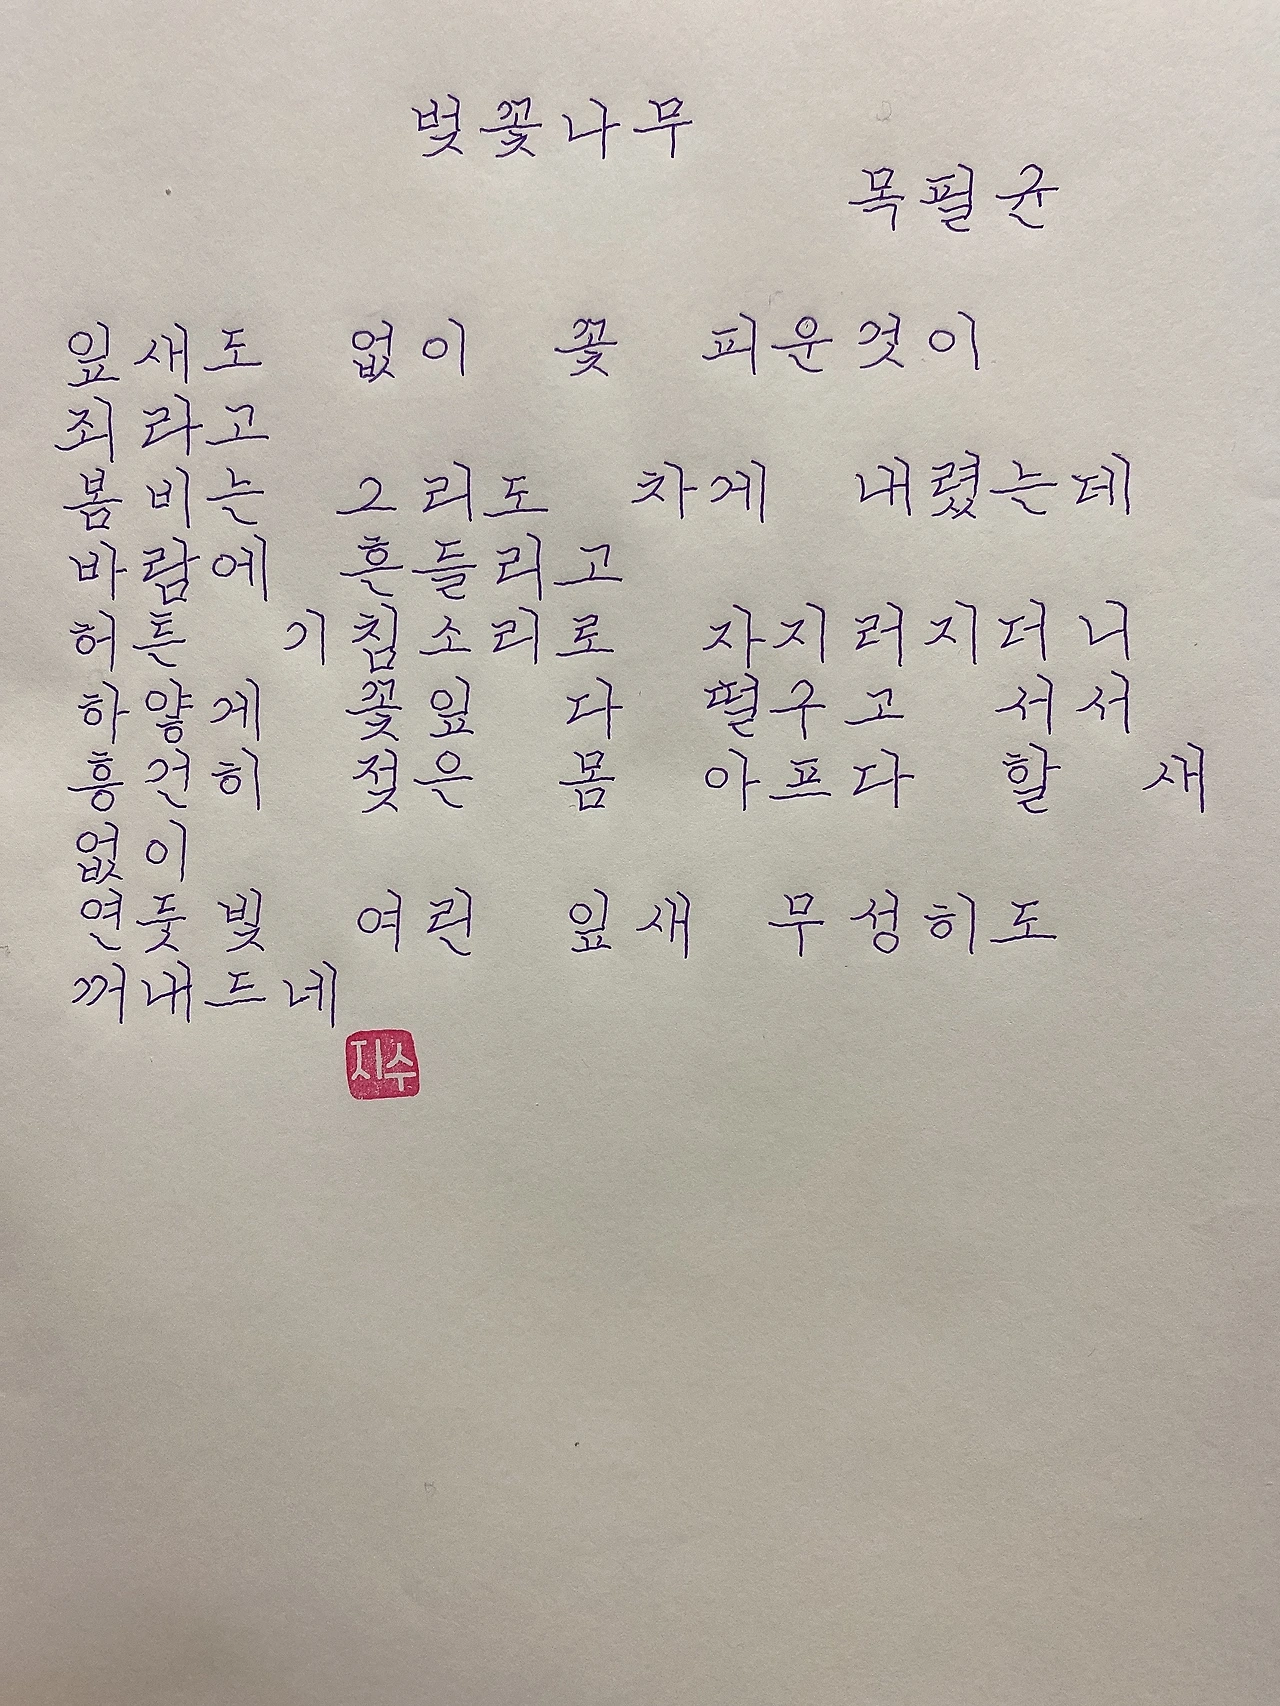 벚꽃나무
목필균
잎새도 없이 꽃 피운것이
죄라고
봄비는 그리도 차게 내렸는데
바람에 흔들리고
허튼 기침소리로 자지러지더니
하얗게 꽃잎 다 떨구고 서서
흥건히 젖은 몸 아프다 할 새
없이
연둣빛 여린 잎새 무성히도
꺼내드네
지수